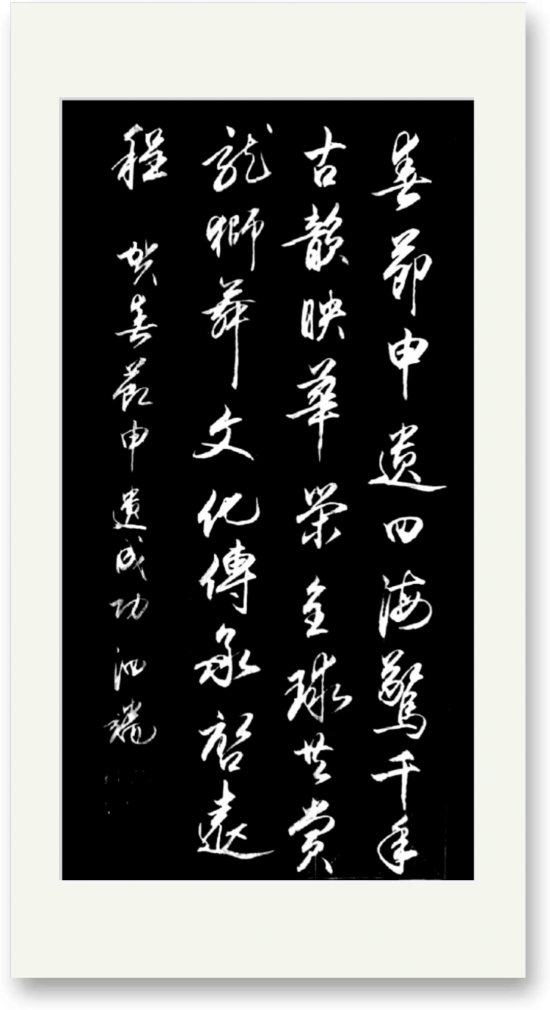 春節申遺四海驚千年
古韻映華榮全球共賞
龍獅舞文化傳承啓遠
程 賀春節申遺成功 泗端